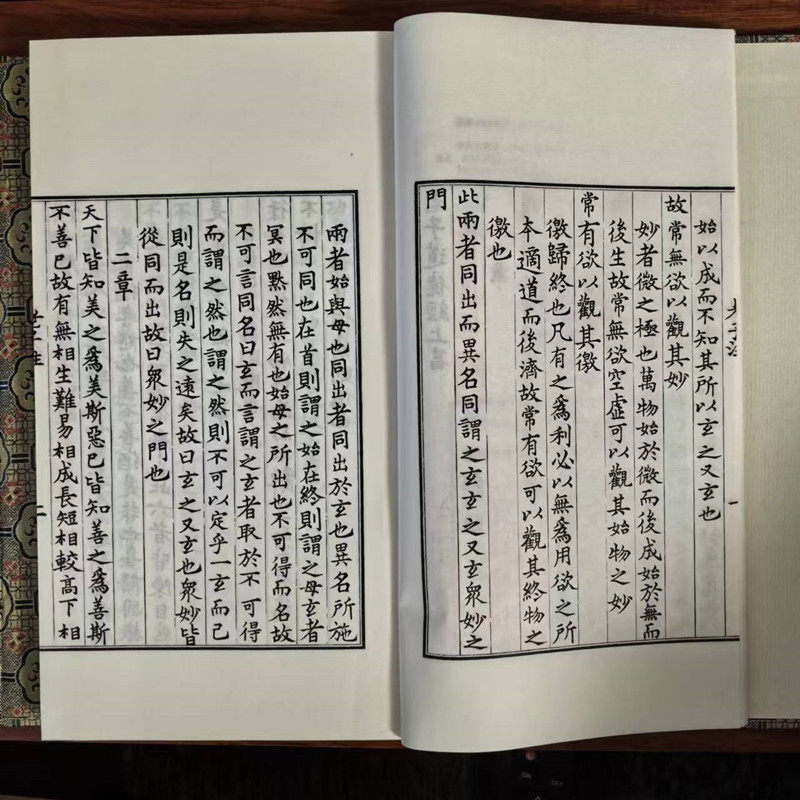 始以成而不知其所以玄之又玄也
故常無欲以觀其妙
妙者微之極也萬物始於微而後成始於無而
後生故常無欲空虛可以觀其始物之妙
常有欲以觀其徼
徼歸終也凡有之為利必以無為用欲之所
本適道而後濟故常有欲可以觀其終物之
徼也
此兩者同出而異名同謂之玄玄之又玄衆妙之
門
兩者始與母也同出者同出於玄也異名所施
不可同也在首則謂之始在終則謂之母玄者
冥也默然無有也始母之所出也不可得而名故
不可言同名曰玄而言謂之玄者取於不可得
而謂之然也謂之然則不可以定乎一玄而已
則是名則失之遠矣故曰玄之又玄也衆妙皆
從同而出故曰衆妙之門也
二章
天下皆知美之為美斯惡已皆知善之為善斯
不善已故有無相生難易相成長短相較高下相
二